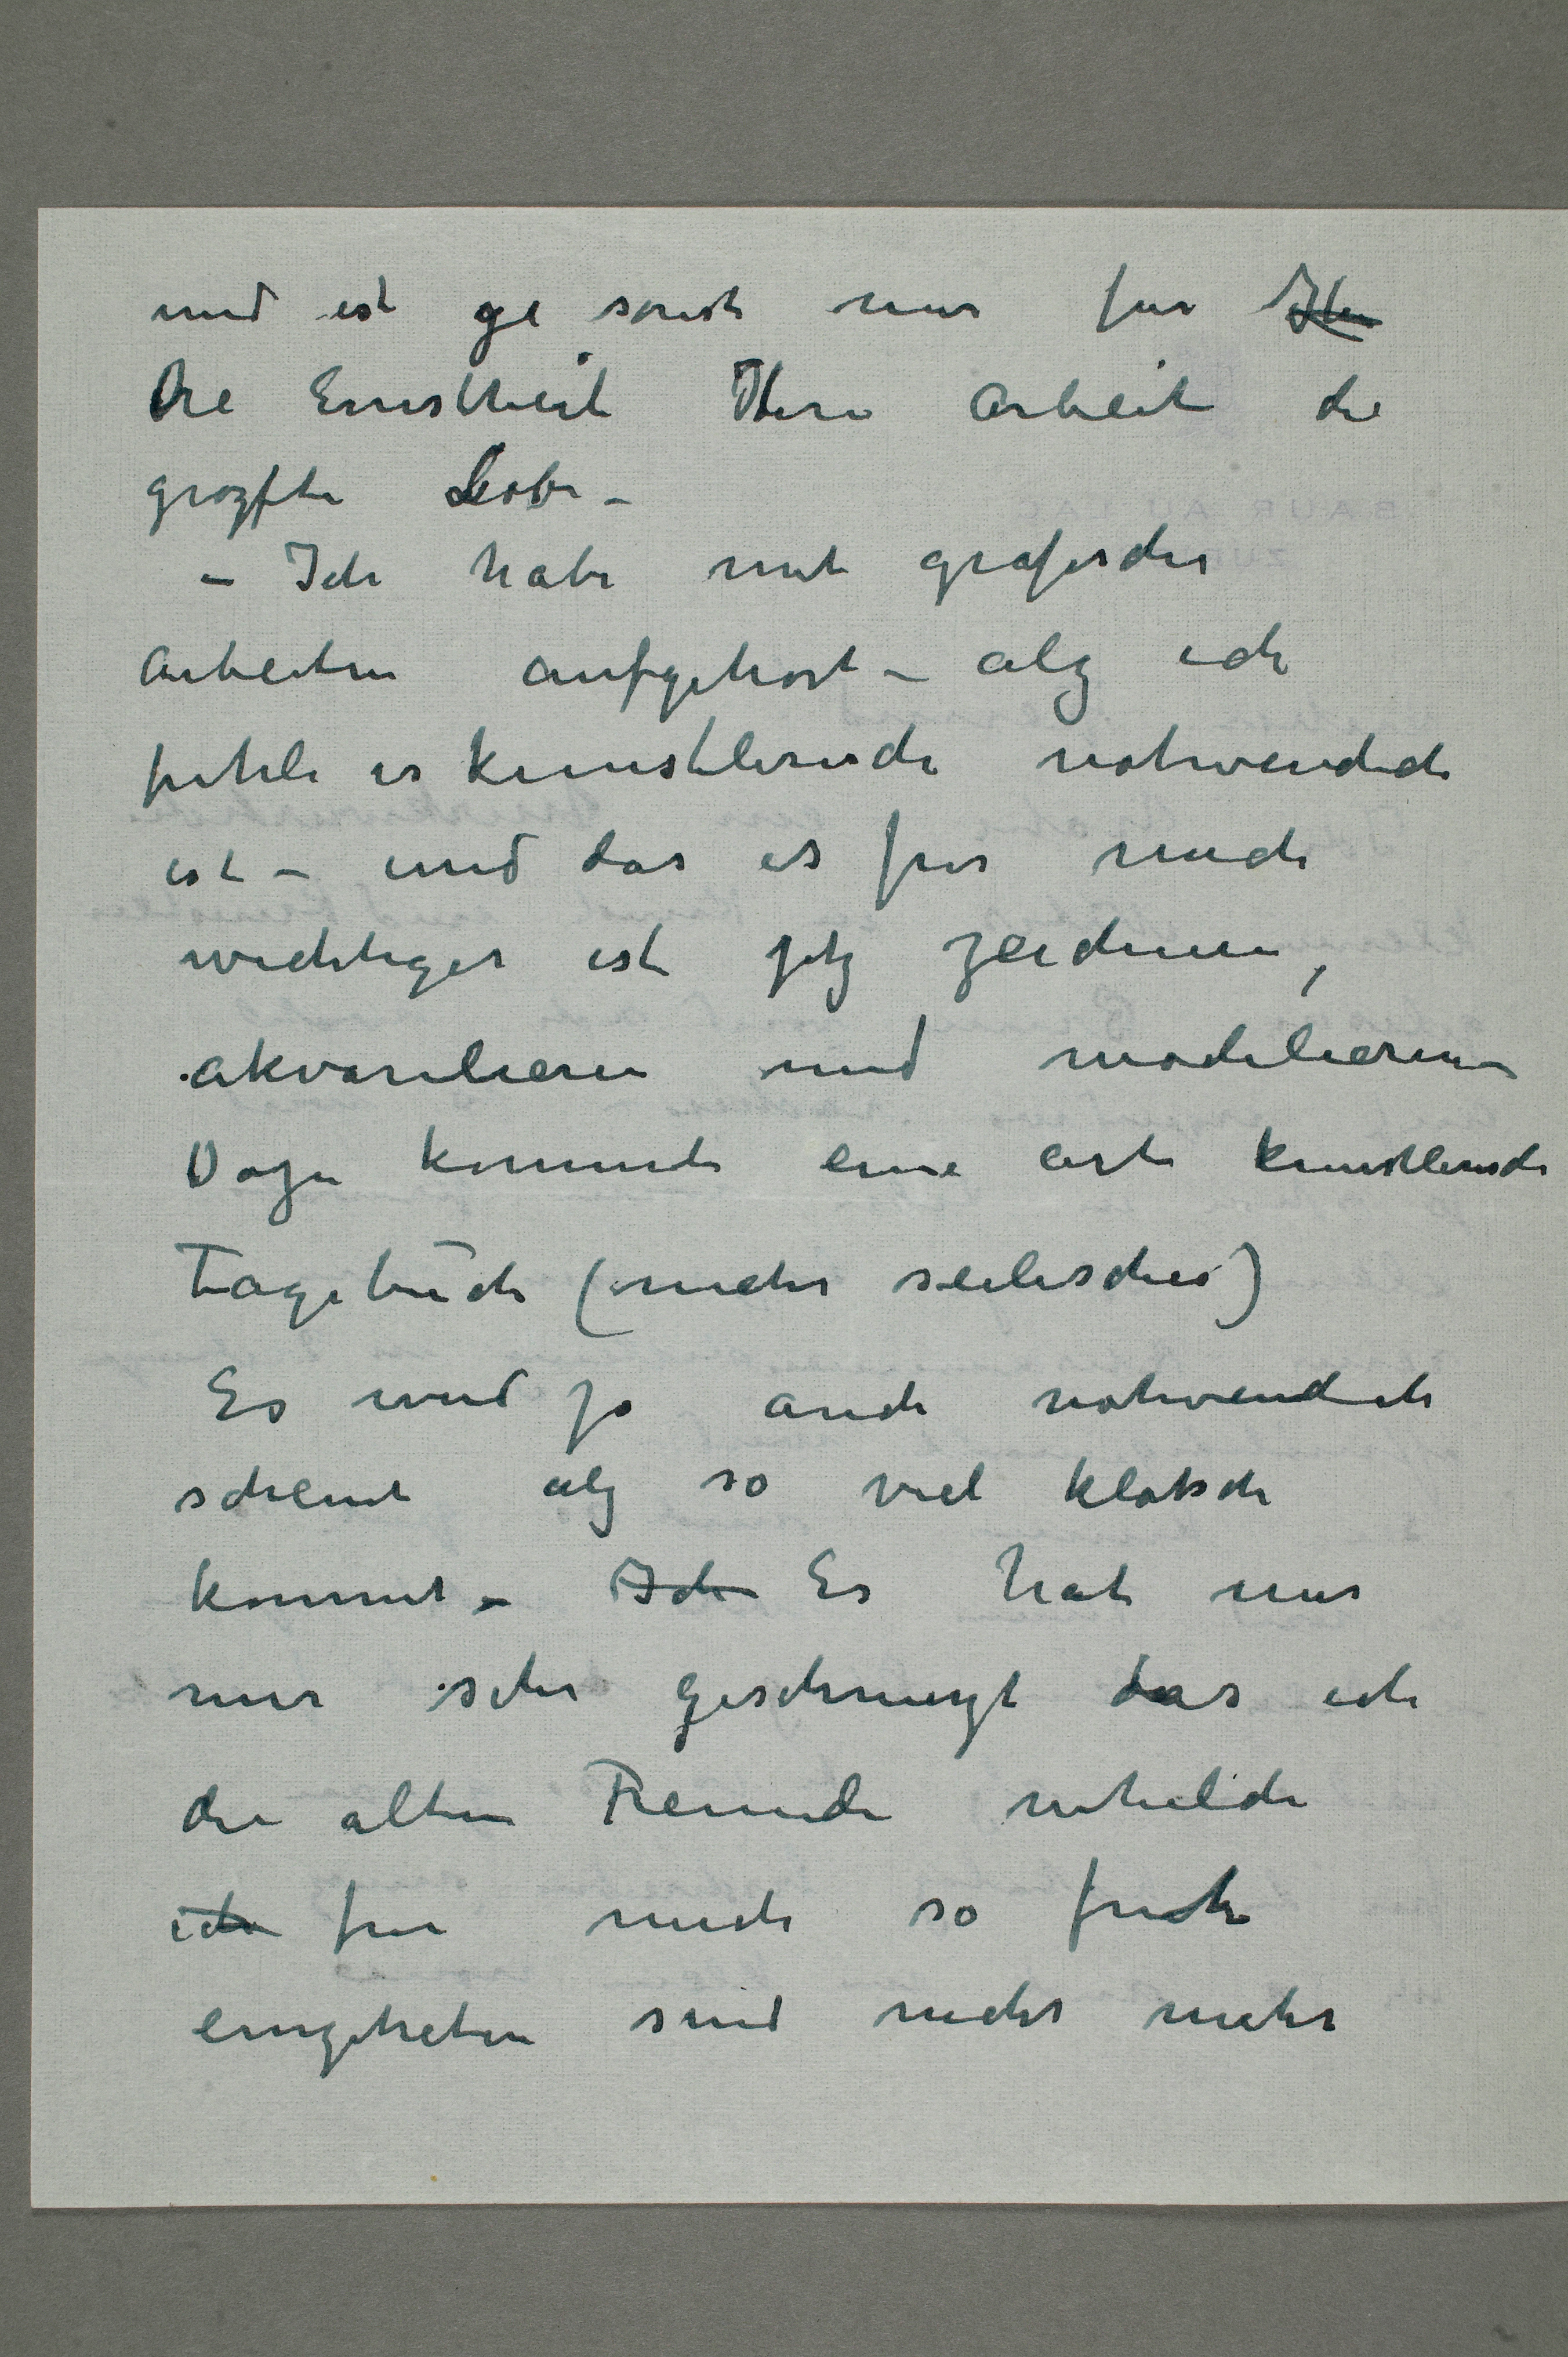 und ist ge sonst nur fur
die Ernstheit Ihre Arbeit die
grozste Lobe –
– Ich habe mit grafischer
Arbeiten aufgehort – alz ich
fuhle es kunstlerisch notwendich
ist – und das es fur mich
wichtiger ist jetz zeichnen,
akvarelieren und modelieren
Dazu kommt eine art kunstlerisch
Tagebuch (mehr seelisches)
Es wird ja auch notwendich
scheint alz so viel klatsch
kommt – Ich Es hat nur
mir sehr geschmerzt das ich
die alten Freunde welche
ich fur mich so fruh
eingetreten sind nicht mehr